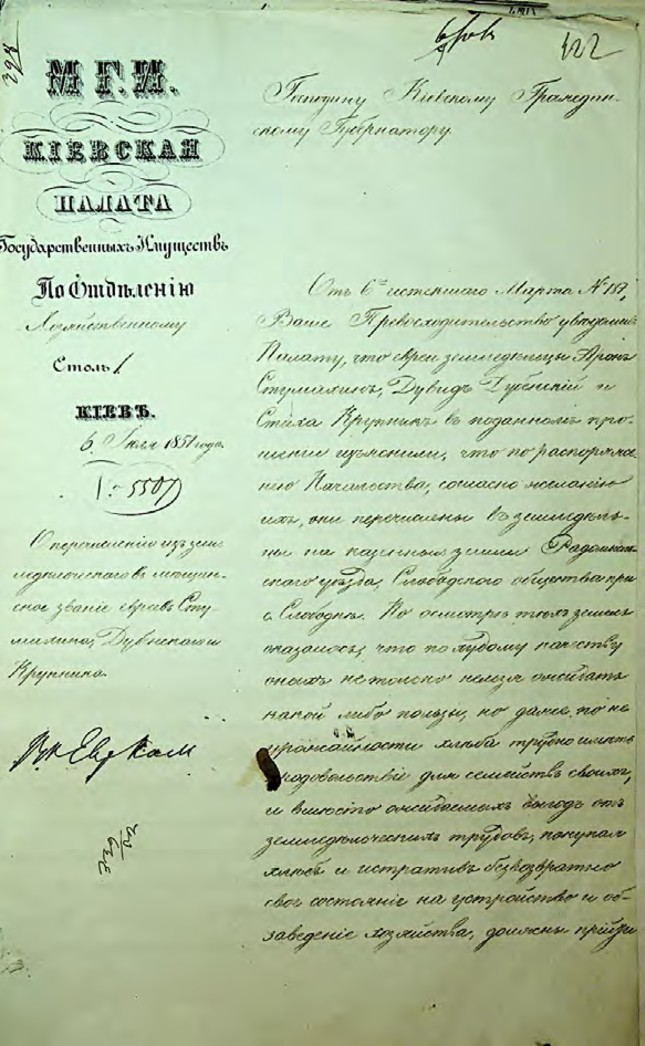 422
398
М Г. И.
КІЕВСКАЯ
ПАЛАТА
Государственныхъ Имуществъ
По Отдѣленію
Хозяйственному
Столъ 1
КІЕВЪ.
6 Іюля 1851 года.
№ 5507
О перечисленіи изъ зем-
ледѣльческаго въ мѣщан-
ское званіе евреевъ Сту-
махина, Дубенскаго и
Крупника.
Господину Кіевскому Граждан-
скому Губернатору.
Отъ 6го истекшаго Марта № 187,
Ваше Превосходительство увѣдомили
Палату, что евреи земледѣльцы Аронъ
Стумахинъ, Дувидъ Дубенскій и
Крупникъ въ поданномъ про-
шеніи изъяснили, что по распоряже-
нію Начальства, согласно желанію
ихъ, они перечислены въ земледѣль-
цы на казенныя земли
уѣзда, Слободскаго общества при
с. Слободкѣ. Но осмотрѣ тѣхъ земель
оказалось, что по худому качеству
оныхъ не только нельзя ожидать
какой либо пользы, но даже по не
урожайности хлѣба трудно имѣть
продовольствіе для семействъ своихъ,
и вмѣсто ожидаемыхъ выгодъ отъ
земледѣльческихъ трудовъ, покупая
хлѣбъ и истративъ безвозвратно
свое состояніе на устройство и об-
заведеніе хозяйства, должны прійти